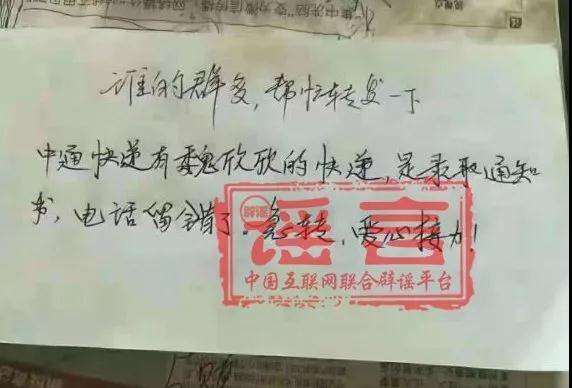 谁的群多，帮忙转发一下
中通快递有魏欣欣的快递，是录取通知
书，电话留错了。急转，爱心接力！
辟谣
谣言
中国互联网联合辟谣平台